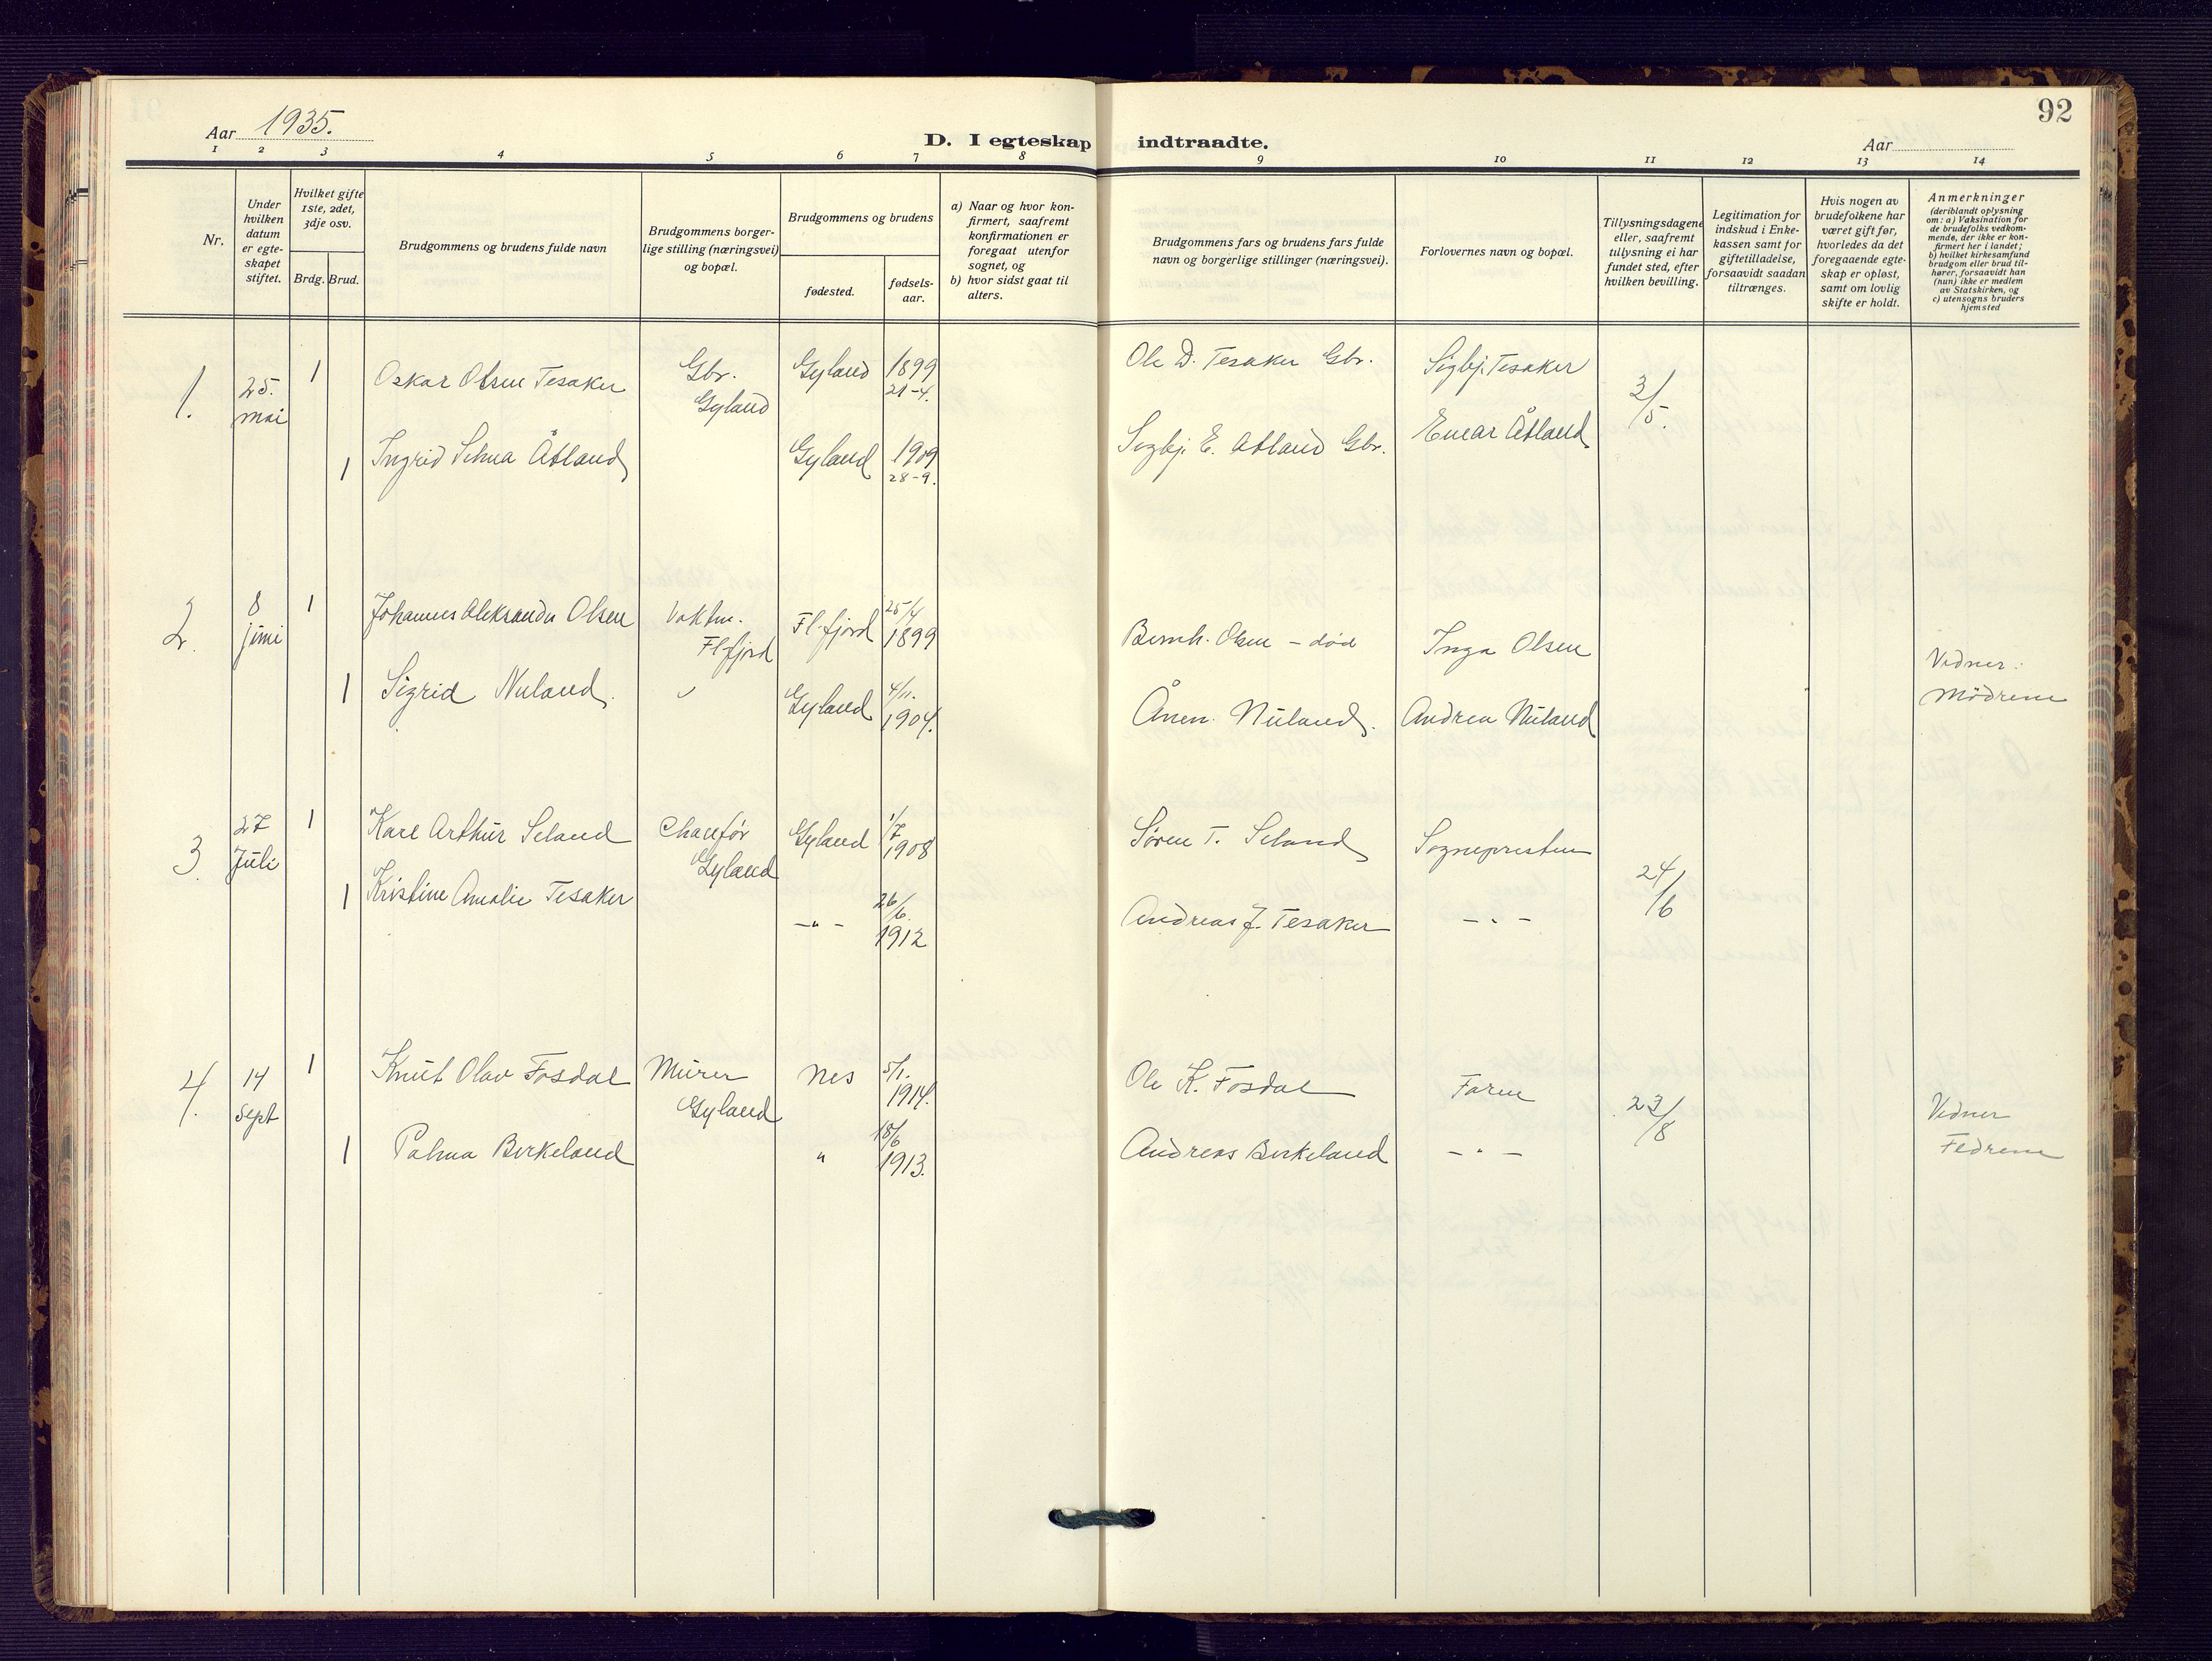 92
Aar 1935.
D. I egteskap indtraadte.
Aar
1 2 3 4 5 6 7 8 9 10 11 12 13 14
Nr.
Under
hvilken
datum
er egte-
skapet
stiftet.
Hvilket gifte
1ste, 2det,
3dje osv.
Brdg. Brud.
Brudgommens og brudens fulde navn
Brudgommens borger-
lige stilling (næringsvei)
og bopæl.
Brudgommens og brudens
fødested.
fødsels-
aar.
a) Naar og hvor kon-
firmert, saafremt
konfirmationen er
foregaat utenfor
sognet, og
b) hvor sidst gaat til
alters.
Brudgommens fars og brudens fars fulde
navn og borgerlige stillinger (næringsvei).
Forlovernes navn og bopæl.
Tillysningsdagene
eller, saafremt
tulysning ei har
fundet sted, efter
hvilken bevilling.
Legitimation for
indskud i Enke-
kassen samt for
giftetilladelse,
forsaavidt saadan
tiltrænges.
Hvis nogen av
brudefolkene har
været gift før,
hvorledes da det
foregaaende egte-
skap er opløst,
samt om lovlig
skifte er holdt.
Anmerkninger
(deriblandt oplysning
om: a) Vaksination for
de brudefolks vedkom-
mende, der ikke er kon-
firmert her i landet;
b) hvilket kirkesamfund
brudgom eller brud til-
hører, forsaavidt han
(hun) ikke er medlem
av Statskirken, og
c) utensogns bruders
hjemsted
1. 25. mai 1 Oskar Olsen Tesaker Gbr. Gyland Gyland 1899 21-4. Ole D. Tesaker Gbr. Sigbj. Tesaker 3/5.
1 Ingrid Selma Åtland Gyland 1909 28-9. Sigbj. E. Åtland Gbr. Einar Åtland
2. 8 juni 1 Johannes Aleksander Olsen Vaktm. Fl.fjord Fl.fjord 25/4 1899 Bernh. Olsen - død Inga Olsen Vidner: Mödrene
1 Sigrid Nuland. " Gyland 4/11. 1904. Ånen Nuland. Andrea Nuland
3. 27 Juli 1 Karl Arthur Seland Chauför Gyland Gyland 1/7 1908 Søren T. Seland Sognepresten 24/6
1 Kristine Amalie Tesaker -"- 26/6. 1912 Andreas J. Tesaker -"-
4. 14 Sept 1 Knut Olav Fosdal Murer Gyland Nes 5/1. 1914. Ole K. Fosdal Faren 23/8 Vidner Fedrene
1 Palma Birkeland " 18/6 1913. Andreas Birkeland -"-